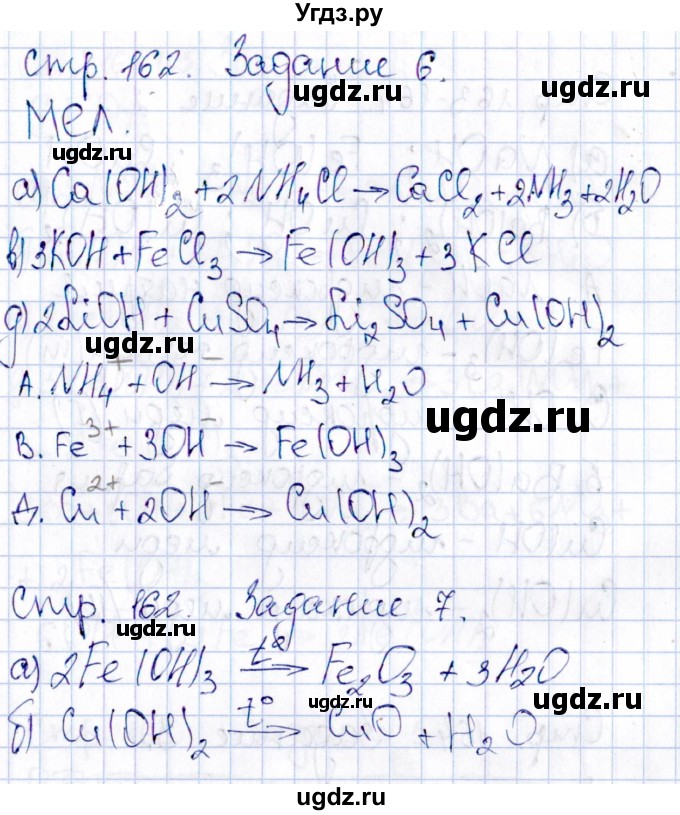 Угдз.ру
стр. 162. Задание 6.
ugdz.ru ugdz.ru
Мел.
ugdz.ru
а) Ca(OH)₂ + 2NH₄Cl → CaCl₂ + 2NH₃ + 2H₂O
в) 3KOH + FeCl₃ → Fe(OH)₃ + 3KCl
д) 2LiOH + CuSO₄ → Li₂SO₄ + Cu(OH)₂
ugdz.ru
А. NH₄⁺ + OH⁻ → NH₃ + H₂O
ugdz.ru
В. Fe³⁺ + 3OH⁻ → Fe(OH)₃
Д. Cu²⁺ + 2OH⁻ → Cu(OH)₂
ugdz.ru
Стр. 162. Задание 7.
ugdz.ru
а) 2Fe(OH)₃ t° → Fe₂O₃ + 3H₂O
ugdz.ru
б) Cu(OH)₂ t° → CuO + H₂O
ugdz.ru
ugdz.ru